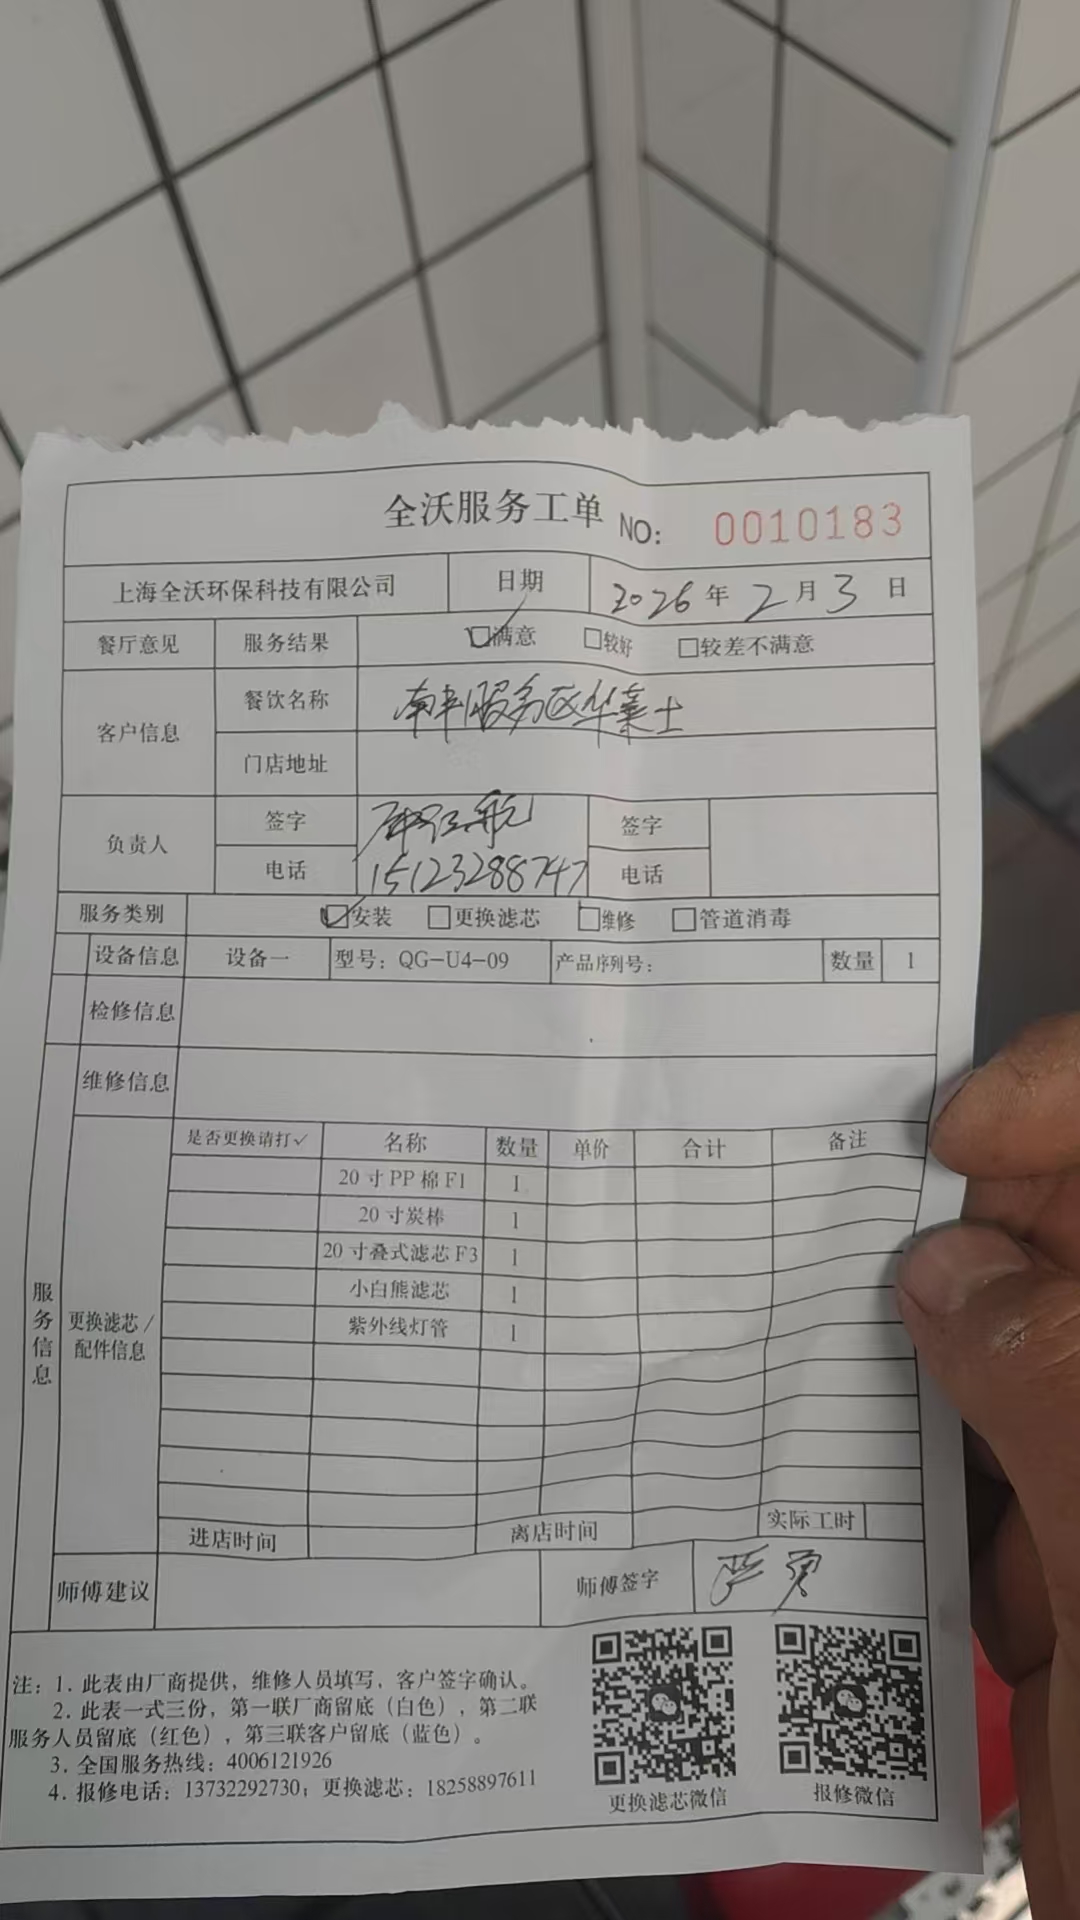 全沃服务工单 NO: 0010183
上海全沃环保科技有限公司 日期 2026年2月3日
餐厅意见 服务结果 ☑满意 □较好 □较差不满意
客户信息 餐饮名称 南丰服务区华莱士
门店地址
负责人 签字 航 签字
电话 15123288747 电话
服务类别 ☑安装 □更换滤芯 □维修 □管道消毒
设备信息 设备一 型号：QG-U4-09 产品序列号： 数量 1
检修信息
维修信息
服务信息
更换滤芯/配件信息
是否更换请打✓ 名称 数量 单价 合计 备注
20寸PP棉F1 1
20寸炭棒 1
20寸叠式滤芯F3 1
小白熊滤芯 1
紫外线灯管 1
进店时间 离店时间 实际工时
师傅建议 师傅签字 严勇
注：1. 此表由厂商提供，维修人员填写，客户签字确认。
2. 此表一式三份，第一联厂商留底（白色），第二联
服务人员留底（红色），第三联客户留底（蓝色）。
3. 全国服务热线：4006121926
4. 报修电话：13732292730；更换滤芯：18258897611
更换滤芯微信 报修微信